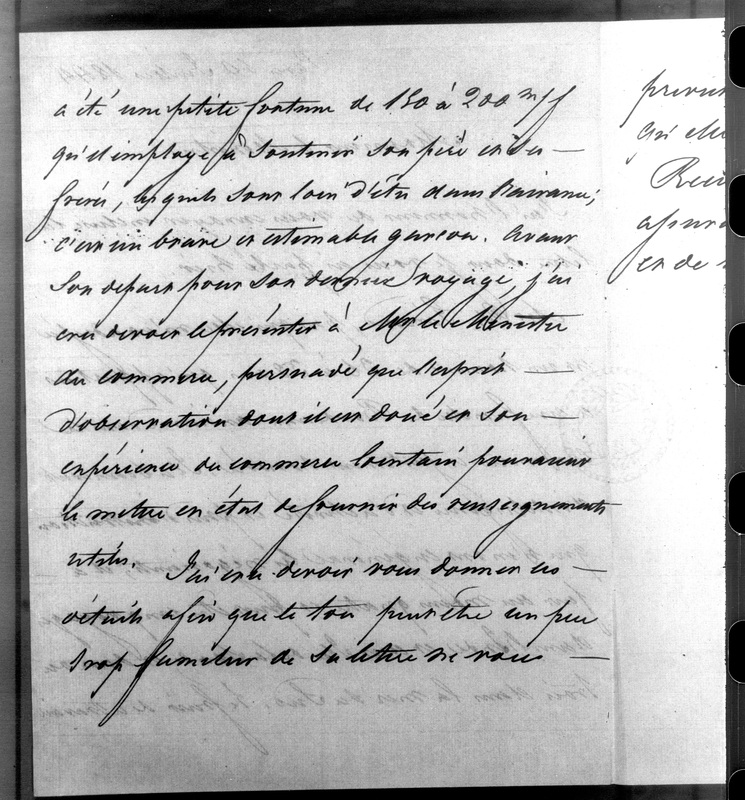 a été une petite fortune de 150 à 200 m/f
qu'il employe à soutenir son père et ses
frères, lesquels sont loin d'être dans l'aisance;
c'est un brave et estimable garçon. Avant
son départ pour son dernier voyage, j'ai
cru devoir le présenter à Mr le Ministre
du commerce, persuadé que l'esprit
d'observation dont il est doué et son
expérience du commerce lointain pourraient
le mettre en état de fournir des renseignements
utiles. J'ai cru devoir vous donner ces
détails afin que le ton peut être un peu
trop familier de sa lettre ne vous
en de